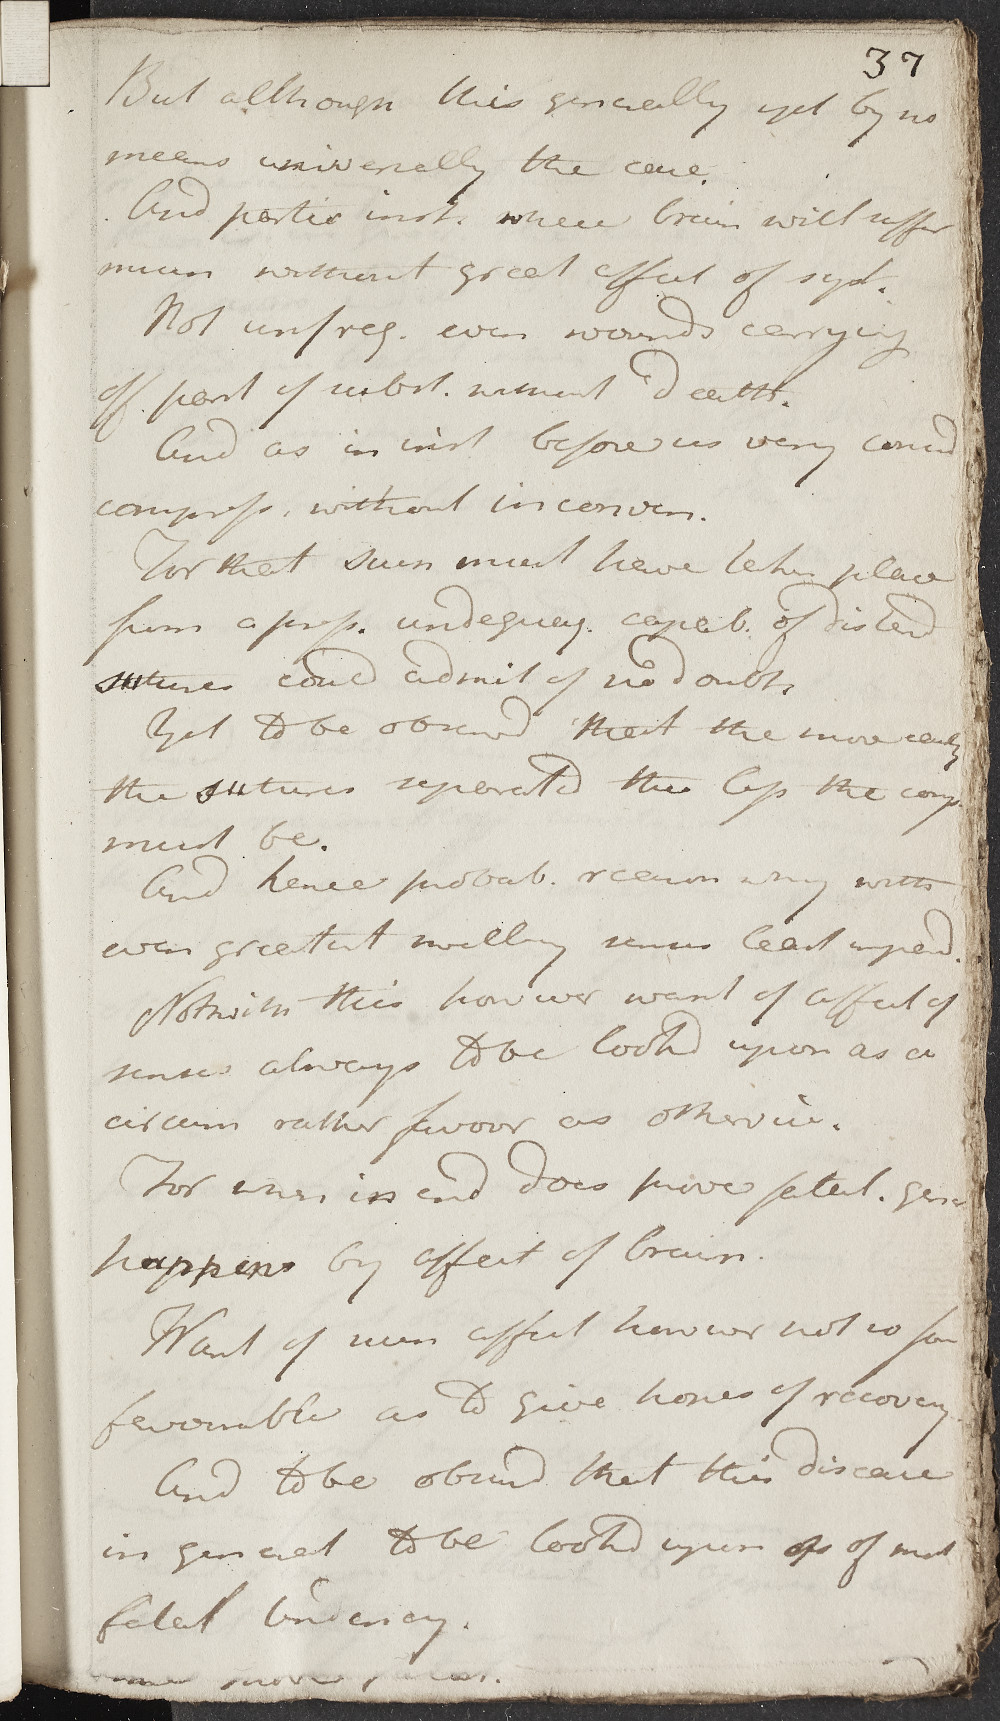 37
But although this generally yet by no
means universally the case.
And partic inst. where brain will suffer
much without great affect of syst.
Not unfreq. even wounds carrying
off part of subst. without death.
And as in inst before us very consid
compress. without inconven.
For that such must have taken place
from a press. undequay. capab. of distend
sutures could admit of no doubt.
Yet to be observd that the more easily
the sutures seperated the less the comp.
must be.
And hence probab. reason why with
even greatest swelling senses least impaird.
Notwith this however want of affect of
senses always to be lookd upon as a
circum rather favor as otherwise.
For when in end does prove fatal. gen
happens by affect of brain.
Want of such affect however not so far
favourable as to give hopes of recovery.
And to be observd that this disease
in general to be lookd upon as of most
fatal tendency.